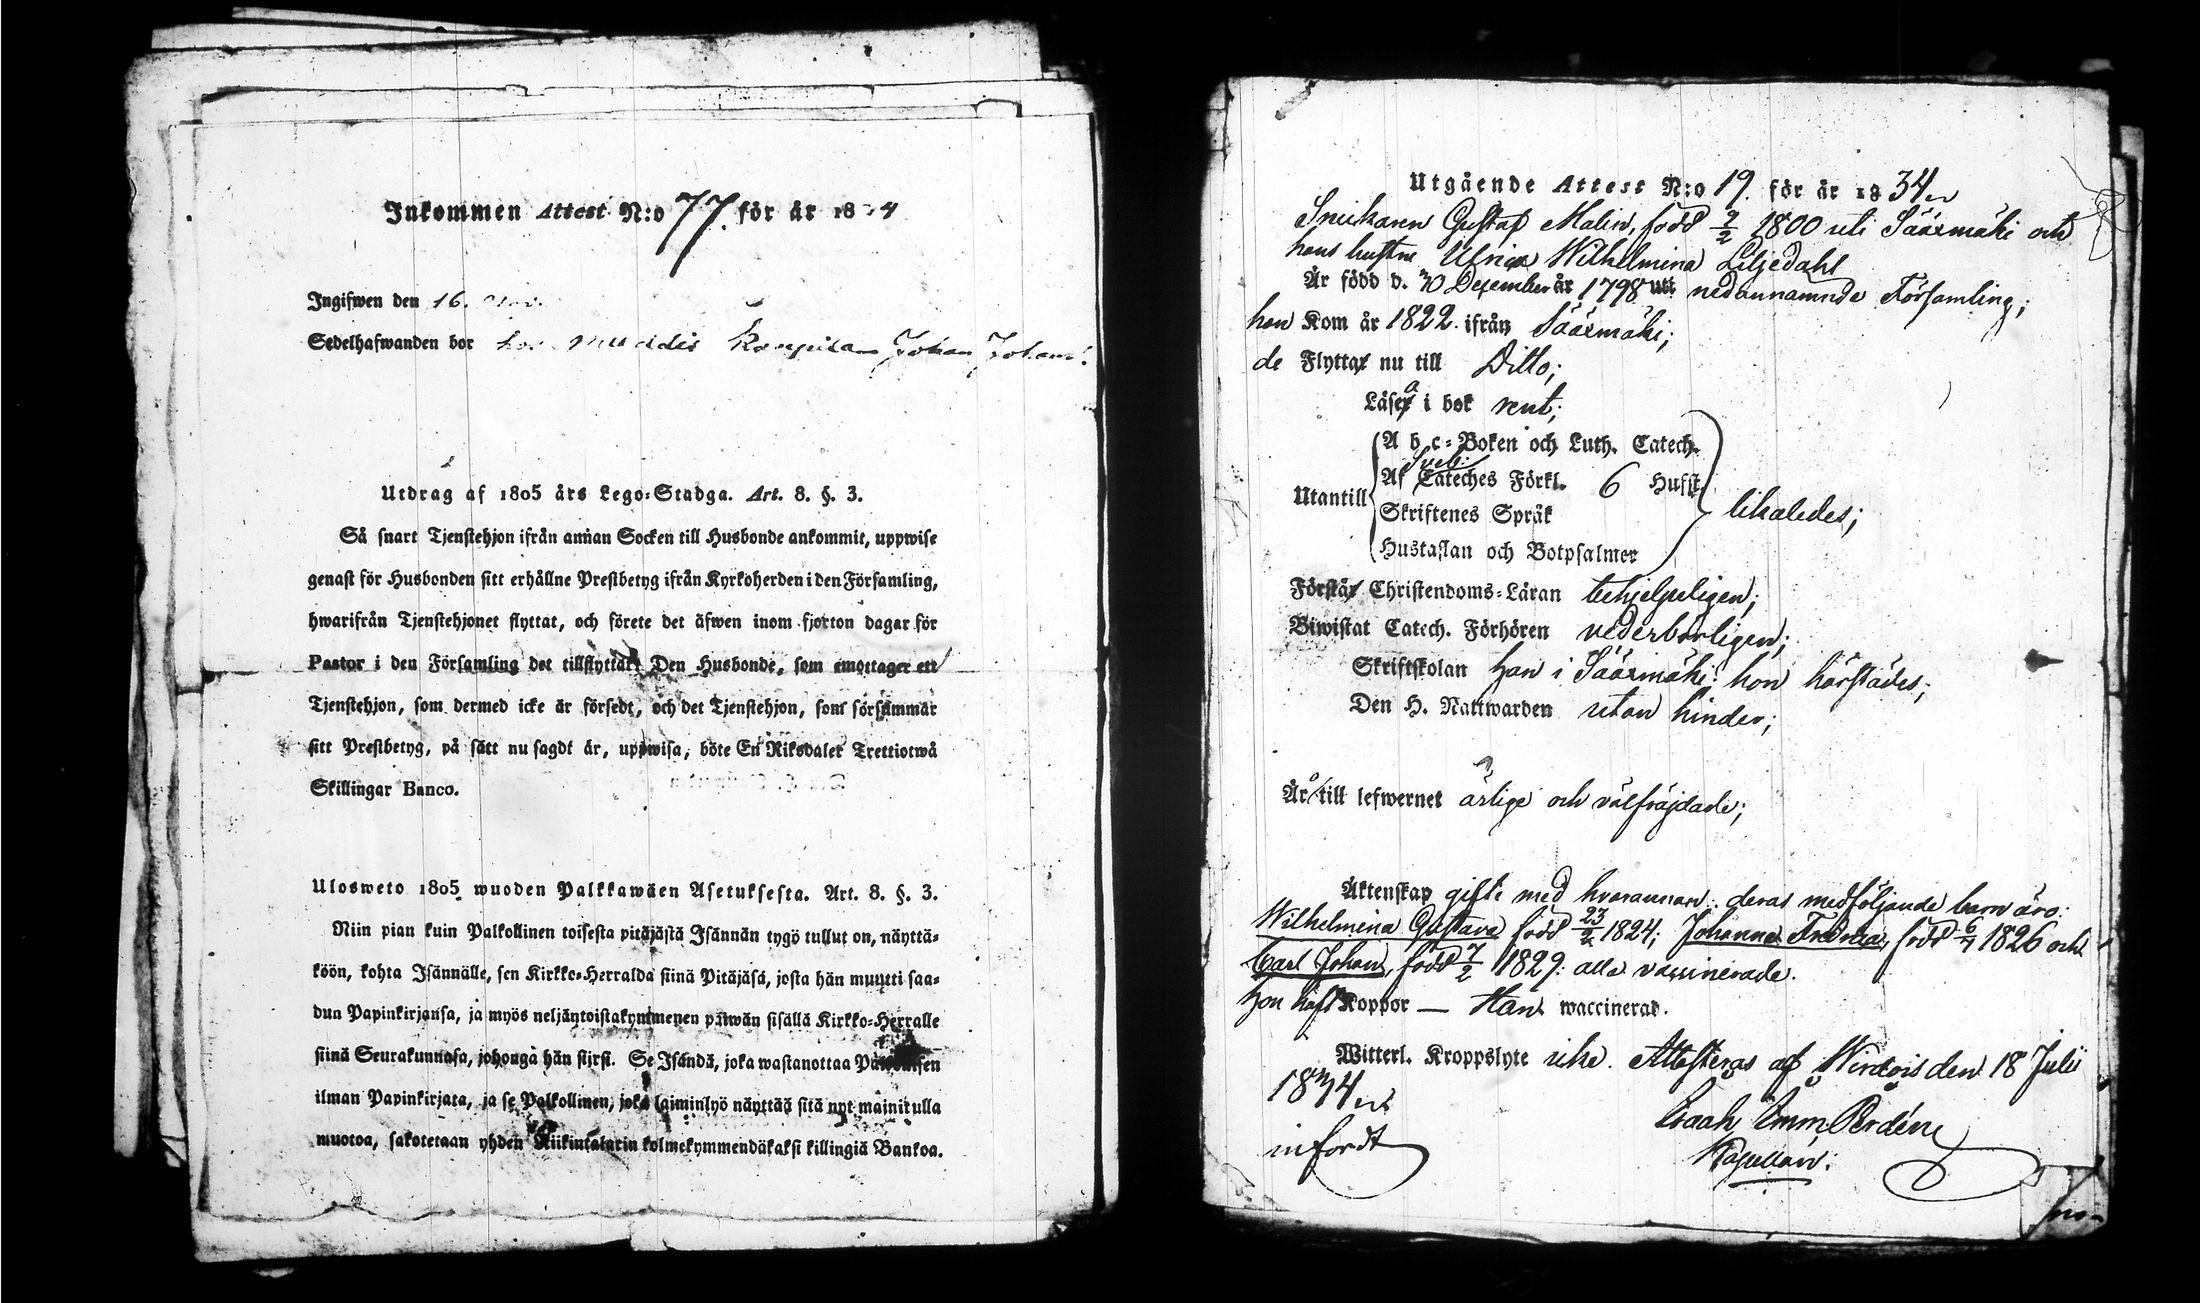 Inkommen Attest N:o 77. för år 18 4
Ingifwen den 16. Nov.
Sedelhafwanden bor hos Johan Johans.
Utdrag af 1805 års Lego-Stadga. Art. 8. §. 3.
Så snart Tjenstehjon ifrån annan Socken till Husbonde ankommit, uppwise
genast för Husbonden sitt erhållne Prestbetyg ifrån Kyrkoherden i den Församling,
hwarifrån Tjenstehjonet flyttat, och förete det äfwen inom fjorton dagar för
Pastor i den Församling det tillflyttat. Den Husbonde, som emottager ett
Tjenstehjon, som dermed icke är försedt, och det Tjenstehjon, som försummar
sitt Prestbetyg, på sätt nu sagdt är, uppwisa, böte En Riksdaler Trettiotwå
Skillingar Banco.
Ulosweto 1805 wuoden Palkkawäen Asetuksesta. Art. 8. §. 3.
Niin pian kuin Palkollinen toisesta pitäjästä Isännän tygö tullut on, näyttä-
köön, kohta Isännälle, sen Kirkko-Herralda siinä Pitäjäsä, josta hän muutti saa-
dun Papinkirjansa, ja myös neljäntoistakymmenen päiwän sisällä Kirkko-Herralle
siinä Seurakunnasa, johonga hän siirsi. Se Isändä, joka wastanottaa Palkollisen
ilman Papinkirjata, ja se Palkollinen, joka laiminlyö näyttää sitä nyt mainitulla
muotoa, sakotetaan yhden Riikintalarin kolmekymmendäkaksi killingiä Bankoa.
Utgående Attest N:o 19. för år 1834
Gustaf Malin, född 2/2 1800 uti Sääxmäki och
hans hustru Ulrica Wilhelmina Liljedahl
Är född d. 30 December år 1798 uti nedannämnde Församling;
hon Kom år 1822. ifrån Sääxmäki;
de Flyttar nu till Ditto;
Läser a i bok rent;
Utantill
A b c-Boken och Luth. Catech.
Sveb:
Af Cateches Förkl. 6 Hufst.
Skriftenes Språk
Hustaflan och Botpsalmer
likaledes;
Förstår Christendoms-Läran behjelpeligen;
Biwistat Catech. Förhören vederbörligen;
Skriftskolan han i Sääxmäki: hon härstädes;
Den H. Nattwarden utan hinder;
Är till lefwernet ärlige och välfräjdade;
Äktenskap gifte med hvarannan: deras medföljande barn äro:
Wilhelmina Gustava född 23/2 1824; Johanna Fredrica, född 6/7 1826 och
Carl Johan, född 7/2 1829: alla vaccinerade.
Hon haft Koppor — Han waccinerad.
Witterl. Kroppslyte icke. Attesteras af Wirdois den 18 Julii
1834
infördt
Isaak Emm. Perdén
Kapellan.